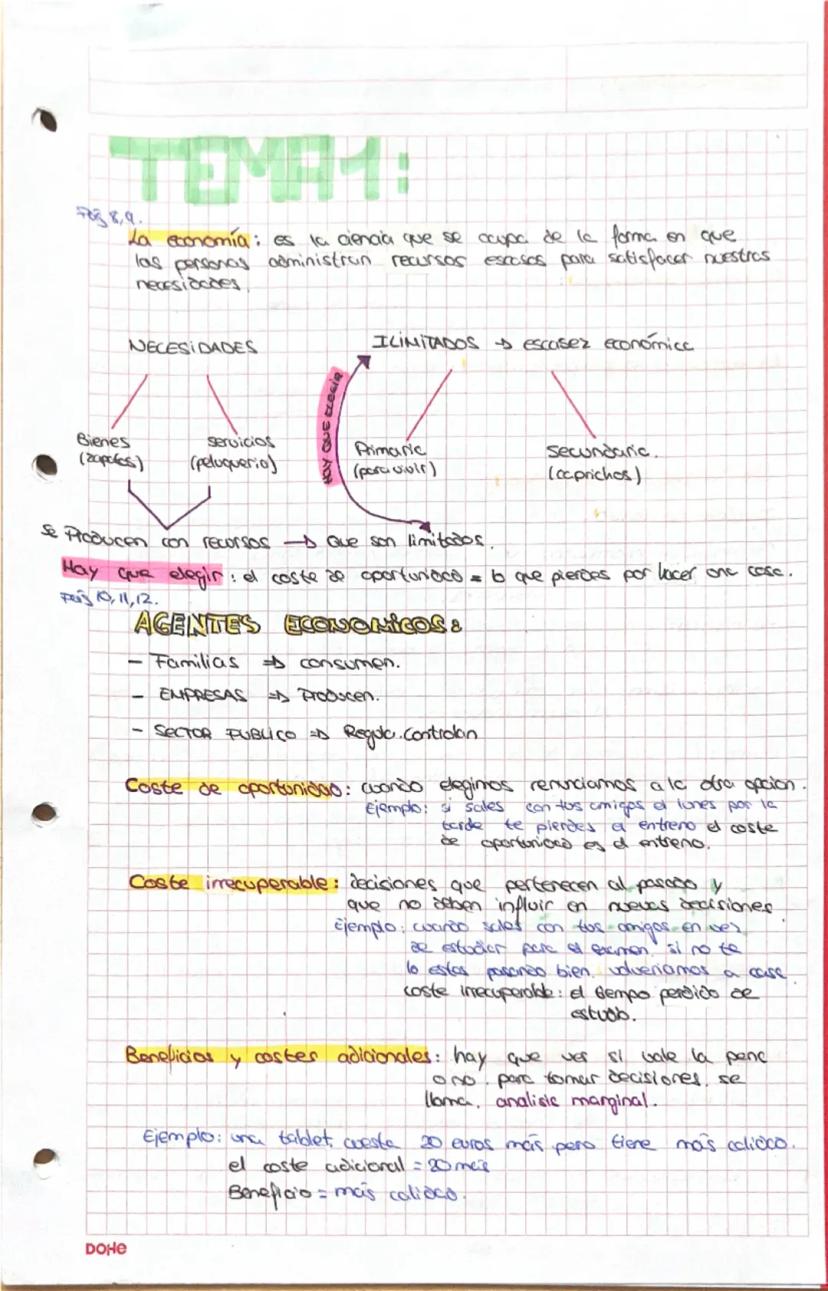 TEMA 1:
Pág 8,9.
La economía: es la ciencia que se ocupa de la forma en que
las personas administran recursos escasos para satisfacer nuestras
necesidades.
NECESIDADES
ILIMITADOS → escasez económica
HAY QUE ELEGIR
Bienes
(zapatos)
servicios
(peluquería)
Primaria
(para vivir)
Secundaria.
(caprichos)
se Producen con recursos → Que son limitados.
Hay que elegir: el coste de oportunidad = lo que pierdes por hacer una cosa.
Pág 10,11,12.
AGENTES ECONOMICOS:
- Familias ⇒ consumen.
- EMPRESAS ⇒ Producen.
- SECTOR PUBLICO ⇒ Regula.controlan
Coste de oportunidad: cuando elegimos renunciamos a la otra opcion.
Ejemplo: si sales con tus amigos el lunes por la
tarde te pierdes el entreno el coste
de oportunidad es el entreno.
Coste irrecuperable: decisiones que pertenecen al pasado y
que no deben influir en nuevas decisiones
Ejemplo: cuando sales con tus amigos en vez
de estudiar para el examen. si no te
lo estas pasando bien. volveriamos a casa.
coste irrecuperable: el tiempo perdido de
estudio.
Beneficios y costes adicionales: hay que ver si vale la pena
o no. para tomar decisiones. se
llama. analisis marginal.
Ejemplo: una tablet, cuesta 20 euros más pero tiene más calidad.
el coste adicional = 20 más
Beneficio = más calidad.
DOHE